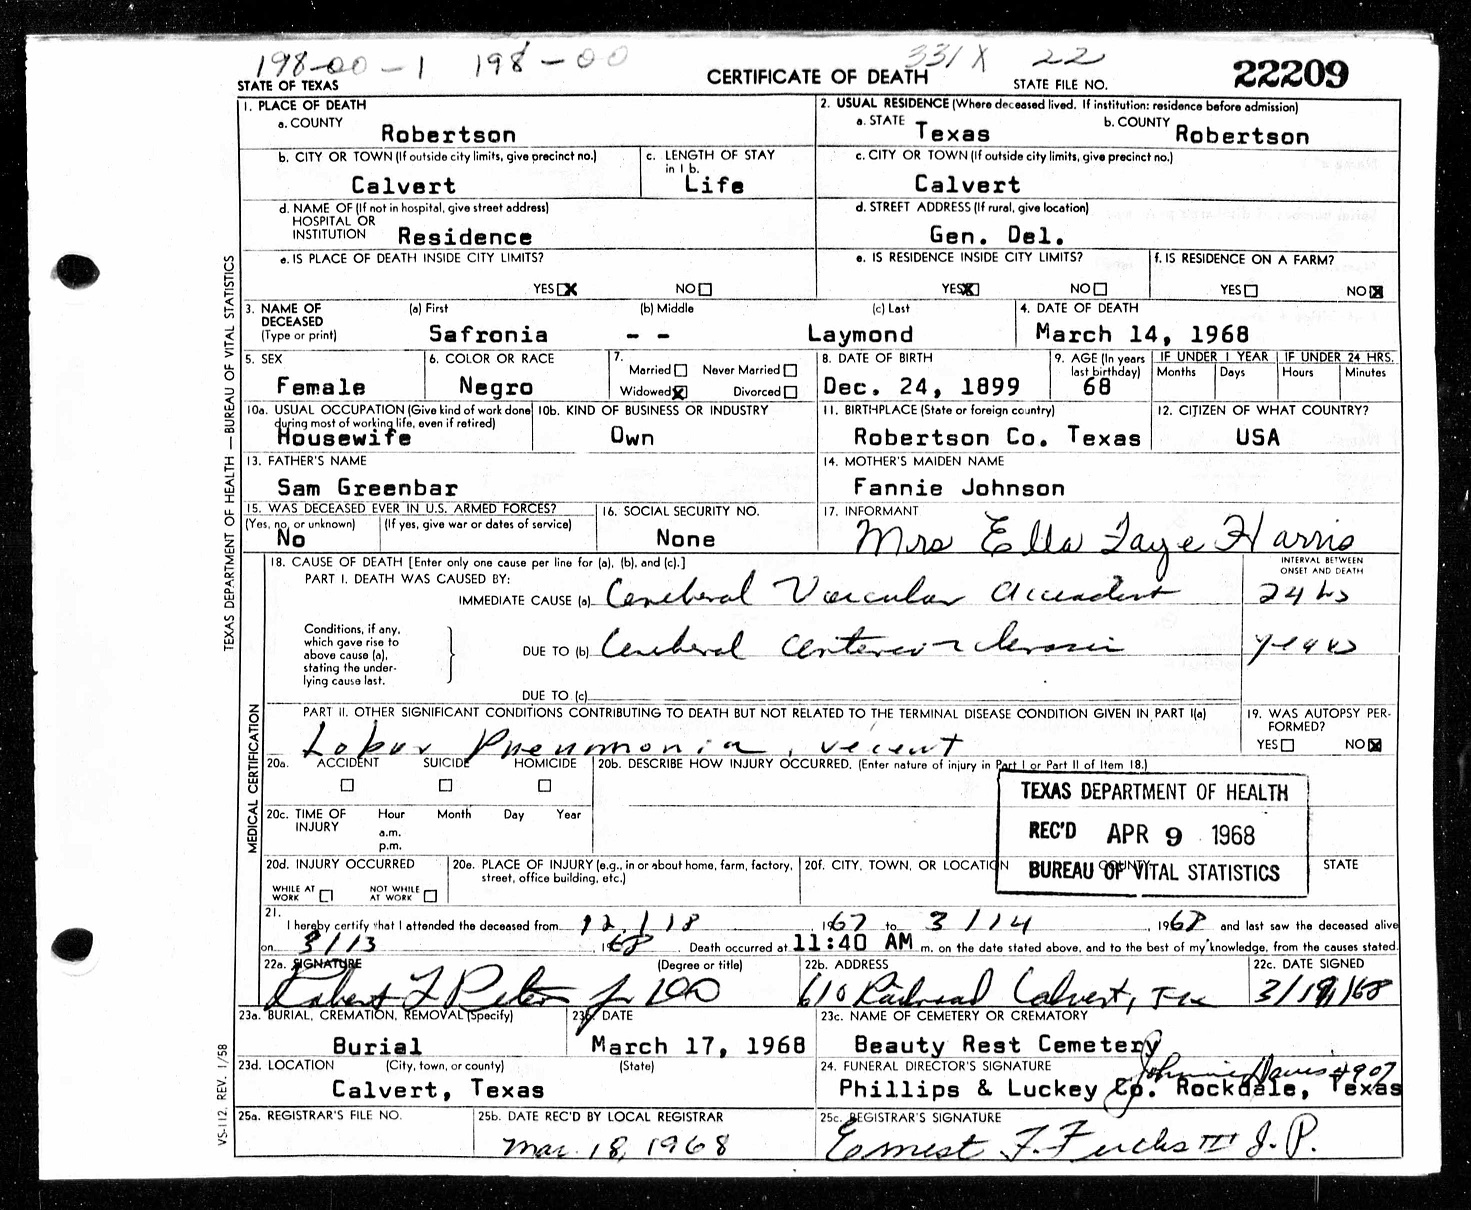 198-00-1 198-00 331X 22
STATE OF TEXAS CERTIFICATE OF DEATH STATE FILE NO. 22209
1. PLACE OF DEATH
a. COUNTY Robertson
2. USUAL RESIDENCE (Where deceased lived. If institution: residence before admission)
a. STATE Texas b. COUNTY Robertson
b. CITY OR TOWN (If outside city limits, give precinct no.) Calvert
c. LENGTH OF STAY in 1 b. Life
c. CITY OR TOWN (If outside city limits, give precinct no.) Calvert
d. NAME OF (If not in hospital, give street address)
HOSPITAL OR
INSTITUTION Residence
d. STREET ADDRESS (If rural, give location)
Gen. Del.
e. IS PLACE OF DEATH INSIDE CITY LIMITS?
YES X NO
e. IS RESIDENCE INSIDE CITY LIMITS?
YES X NO
f. IS RESIDENCE ON A FARM?
YES NO X
3. NAME OF DECEASED (Type or print)
(a) First Safronia (b) Middle - - (c) Last Laymond
4. DATE OF DEATH
March 14, 1968
5. SEX
Female
6. COLOR OR RACE
Negro
7.
Married Never Married
Widowed X Divorced
8. DATE OF BIRTH
Dec. 24, 1899
9. AGE (In years last birthday)
68
IF UNDER 1 YEAR IF UNDER 24 HRS.
Months Days Hours Minutes
10a. USUAL OCCUPATION (Give kind of work done during most of working life, even if retired)
Housewife
10b. KIND OF BUSINESS OR INDUSTRY
Own
11. BIRTHPLACE (State or foreign country)
Robertson Co. Texas
12. CITIZEN OF WHAT COUNTRY?
USA
13. FATHER'S NAME
Sam Greenbar
14. MOTHER'S MAIDEN NAME
Fannie Johnson
15. WAS DECEASED EVER IN U.S. ARMED FORCES?
(Yes, no, or unknown) (If yes, give war or dates of service)
No
16. SOCIAL SECURITY NO.
None
17. INFORMANT
Mrs Ella Faye Harris
18. CAUSE OF DEATH [Enter only one cause per line for (a), (b), and (c).]
INTERVAL BETWEEN ONSET AND DEATH
PART I. DEATH WAS CAUSED BY:
IMMEDIATE CAUSE (a) Cerebral Vascular Accident 24 hs
Conditions, if any,
which gave rise to
above cause (a),
stating the under-
lying cause last.
DUE TO (b) Cerebral Arteriosclerosis years
DUE TO (c)
PART II. OTHER SIGNIFICANT CONDITIONS CONTRIBUTING TO DEATH BUT NOT RELATED TO THE TERMINAL DISEASE CONDITION GIVEN IN PART I(a)
Lobar Pneumonia, recent
19. WAS AUTOPSY PER-
FORMED?
YES NO X
20a. ACCIDENT SUICIDE HOMICIDE
20b. DESCRIBE HOW INJURY OCCURRED. (Enter nature of injury in Part I or Part II of Item 18.)
20c. TIME OF INJURY Hour Month Day Year
a.m.
p.m.
TEXAS DEPARTMENT OF HEALTH
REC'D APR 9 1968
BUREAU OF VITAL STATISTICS
20d. INJURY OCCURRED
WHILE AT WORK NOT WHILE AT WORK
20e. PLACE OF INJURY (e.g., in or about home, farm, factory, street, office building, etc.)
20f. CITY, TOWN, OR LOCATION COUNTY STATE
21.
I hereby certify that I attended the deceased from 12/18 1967 to 3/14, 1968 and last saw the deceased alive
on 3/13 1968. Death occurred at 11:40 AM m. on the date stated above, and to the best of my knowledge, from the causes stated.
22a. SIGNATURE (Degree or title)
Robert L Peter Jr DO
22b. ADDRESS
610 Railroad Calvert, Tex
22c. DATE SIGNED
3/19/68
23a. BURIAL, CREMATION, REMOVAL (Specify)
Burial
23b. DATE
March 17, 1968
23c. NAME OF CEMETERY OR CREMATORY
Beauty Rest Cemetery
23d. LOCATION (City, town, or county) (State)
Calvert, Texas
24. FUNERAL DIRECTOR'S SIGNATURE Johnnie Davis #907
Phillips & Luckey Co. Rockdale, Texas
25a. REGISTRAR'S FILE NO.
25b. DATE REC'D BY LOCAL REGISTRAR
Mar. 18, 1968
25c. REGISTRAR'S SIGNATURE
Ernest F. Fuchs III J.P.
TEXAS DEPARTMENT OF HEALTH — BUREAU OF VITAL STATISTICS
MEDICAL CERTIFICATION
VS-112 REV. 1/58